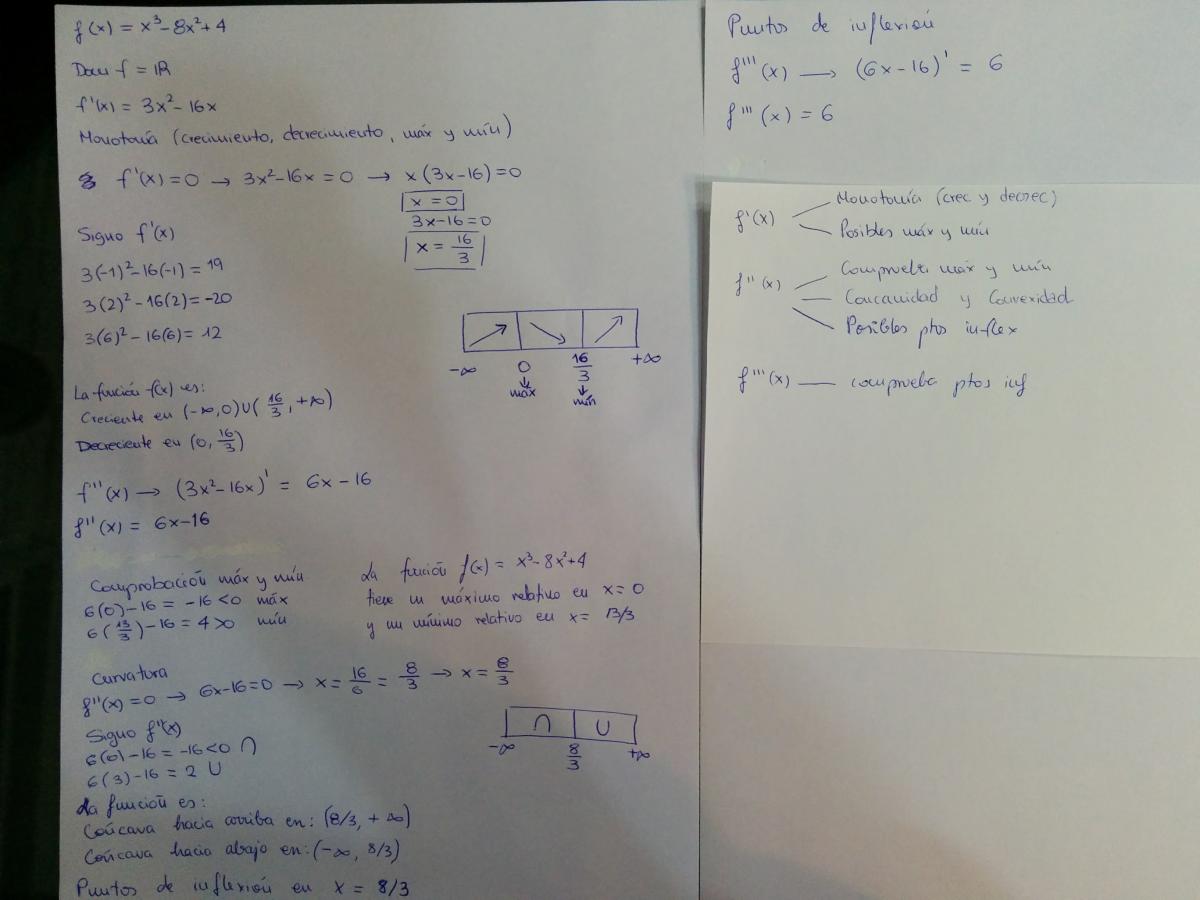 f(x) = x³-8x²+4
Dom f = IR
f'(x) = 3x²-16x
Monotonía (crecimiento, decrecimiento, máx y mín)
f'(x)=0 → 3x²-16x=0 → x(3x-16)=0
x=0
3x-16=0
x = 16/3
Signo f'(x)
3(-1)²-16(-1) = 19
3(2)²-16(2) = -20
3(6)²-16(6) = 12
-∞ 0 16/3 +∞
↓ ↓
máx mín
La función f(x) es:
Creciente en (-∞,0)∪(16/3, +∞)
Decreciente en (0, 16/3)
f''(x) → (3x²-16x)' = 6x-16
f''(x) = 6x-16
Comprobación máx y mín
6(0)-16 = -16<0 máx
6(13/3)-16 = 4>0 mín
La función f(x) = x³-8x²+4
tiene un máximo relativo en x=0
y un mínimo relativo en x= 13/3
Curvatura
f''(x)=0 → 6x-16=0 → x = 16/6 = 8/3 → x = 8/3
Signo f''(x)
6(0)-16 = -16<0 ∩
6(3)-16 = 2 ∪
∩ ∪
-∞ 8/3 +∞
La función es:
Cóncava hacia arriba en: (8/3, +∞)
Cóncava hacia abajo en: (-∞, 8/3)
Puntos de inflexión en x = 8/3
Puntos de inflexión
f'''(x) → (6x-16)' = 6
f'''(x) = 6
f'(x)
Monotonía (crec y decrec)
Posibles máx y mín
f''(x)
Comprueba máx y mín
Concavidad y Convexidad
Posibles ptos inflex
f'''(x) — comprueba ptos inf